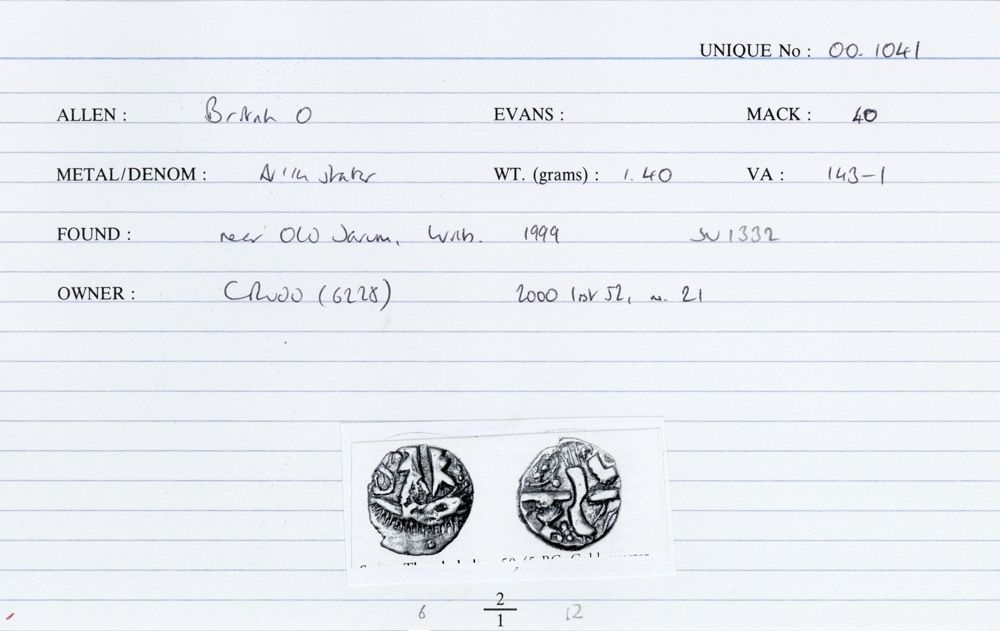 UNIQUE No : 00.1041
ALLEN : British O EVANS : MACK : 40
METAL/DENOM : AV 1/4 stater WT. (grams) : 1.40 VA : 143-1
FOUND : near Old Sarum, Wilts. 1999 SU 1332
OWNER : CR (6228) 2000 list 52, no. 21
6 2/1 12